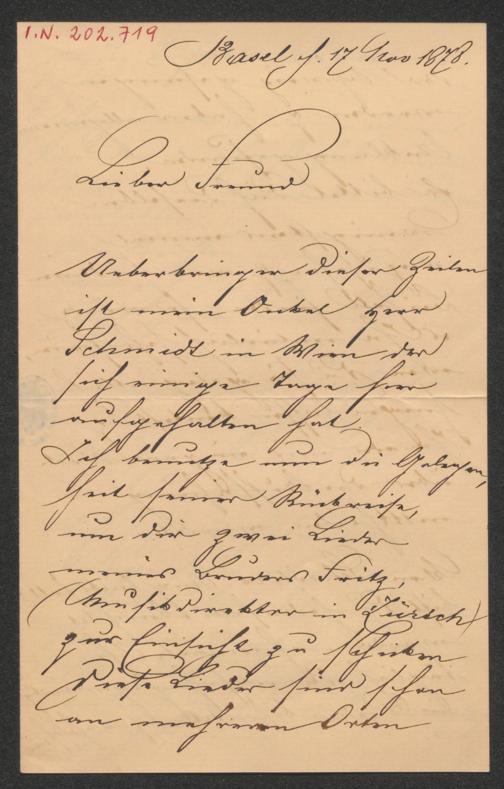 I.N. 202.719
Basel d. 17 Nov 1878.
Lieber Freund
Ueberbringer dieser Zeilen
ist mein Onkel Herr
Schmidt in Wien der
sich einige Tage hier
aufgehalten hat,
Ich benutze nun die Gelegen,
heit seiner Rückreise,
um dir zwei Lieder
meines Bruders Fritz,
(Musikdirektor in Zürich)
zur Einsicht zu schicken
Diese Lieder sind schon
an mehreren Orten